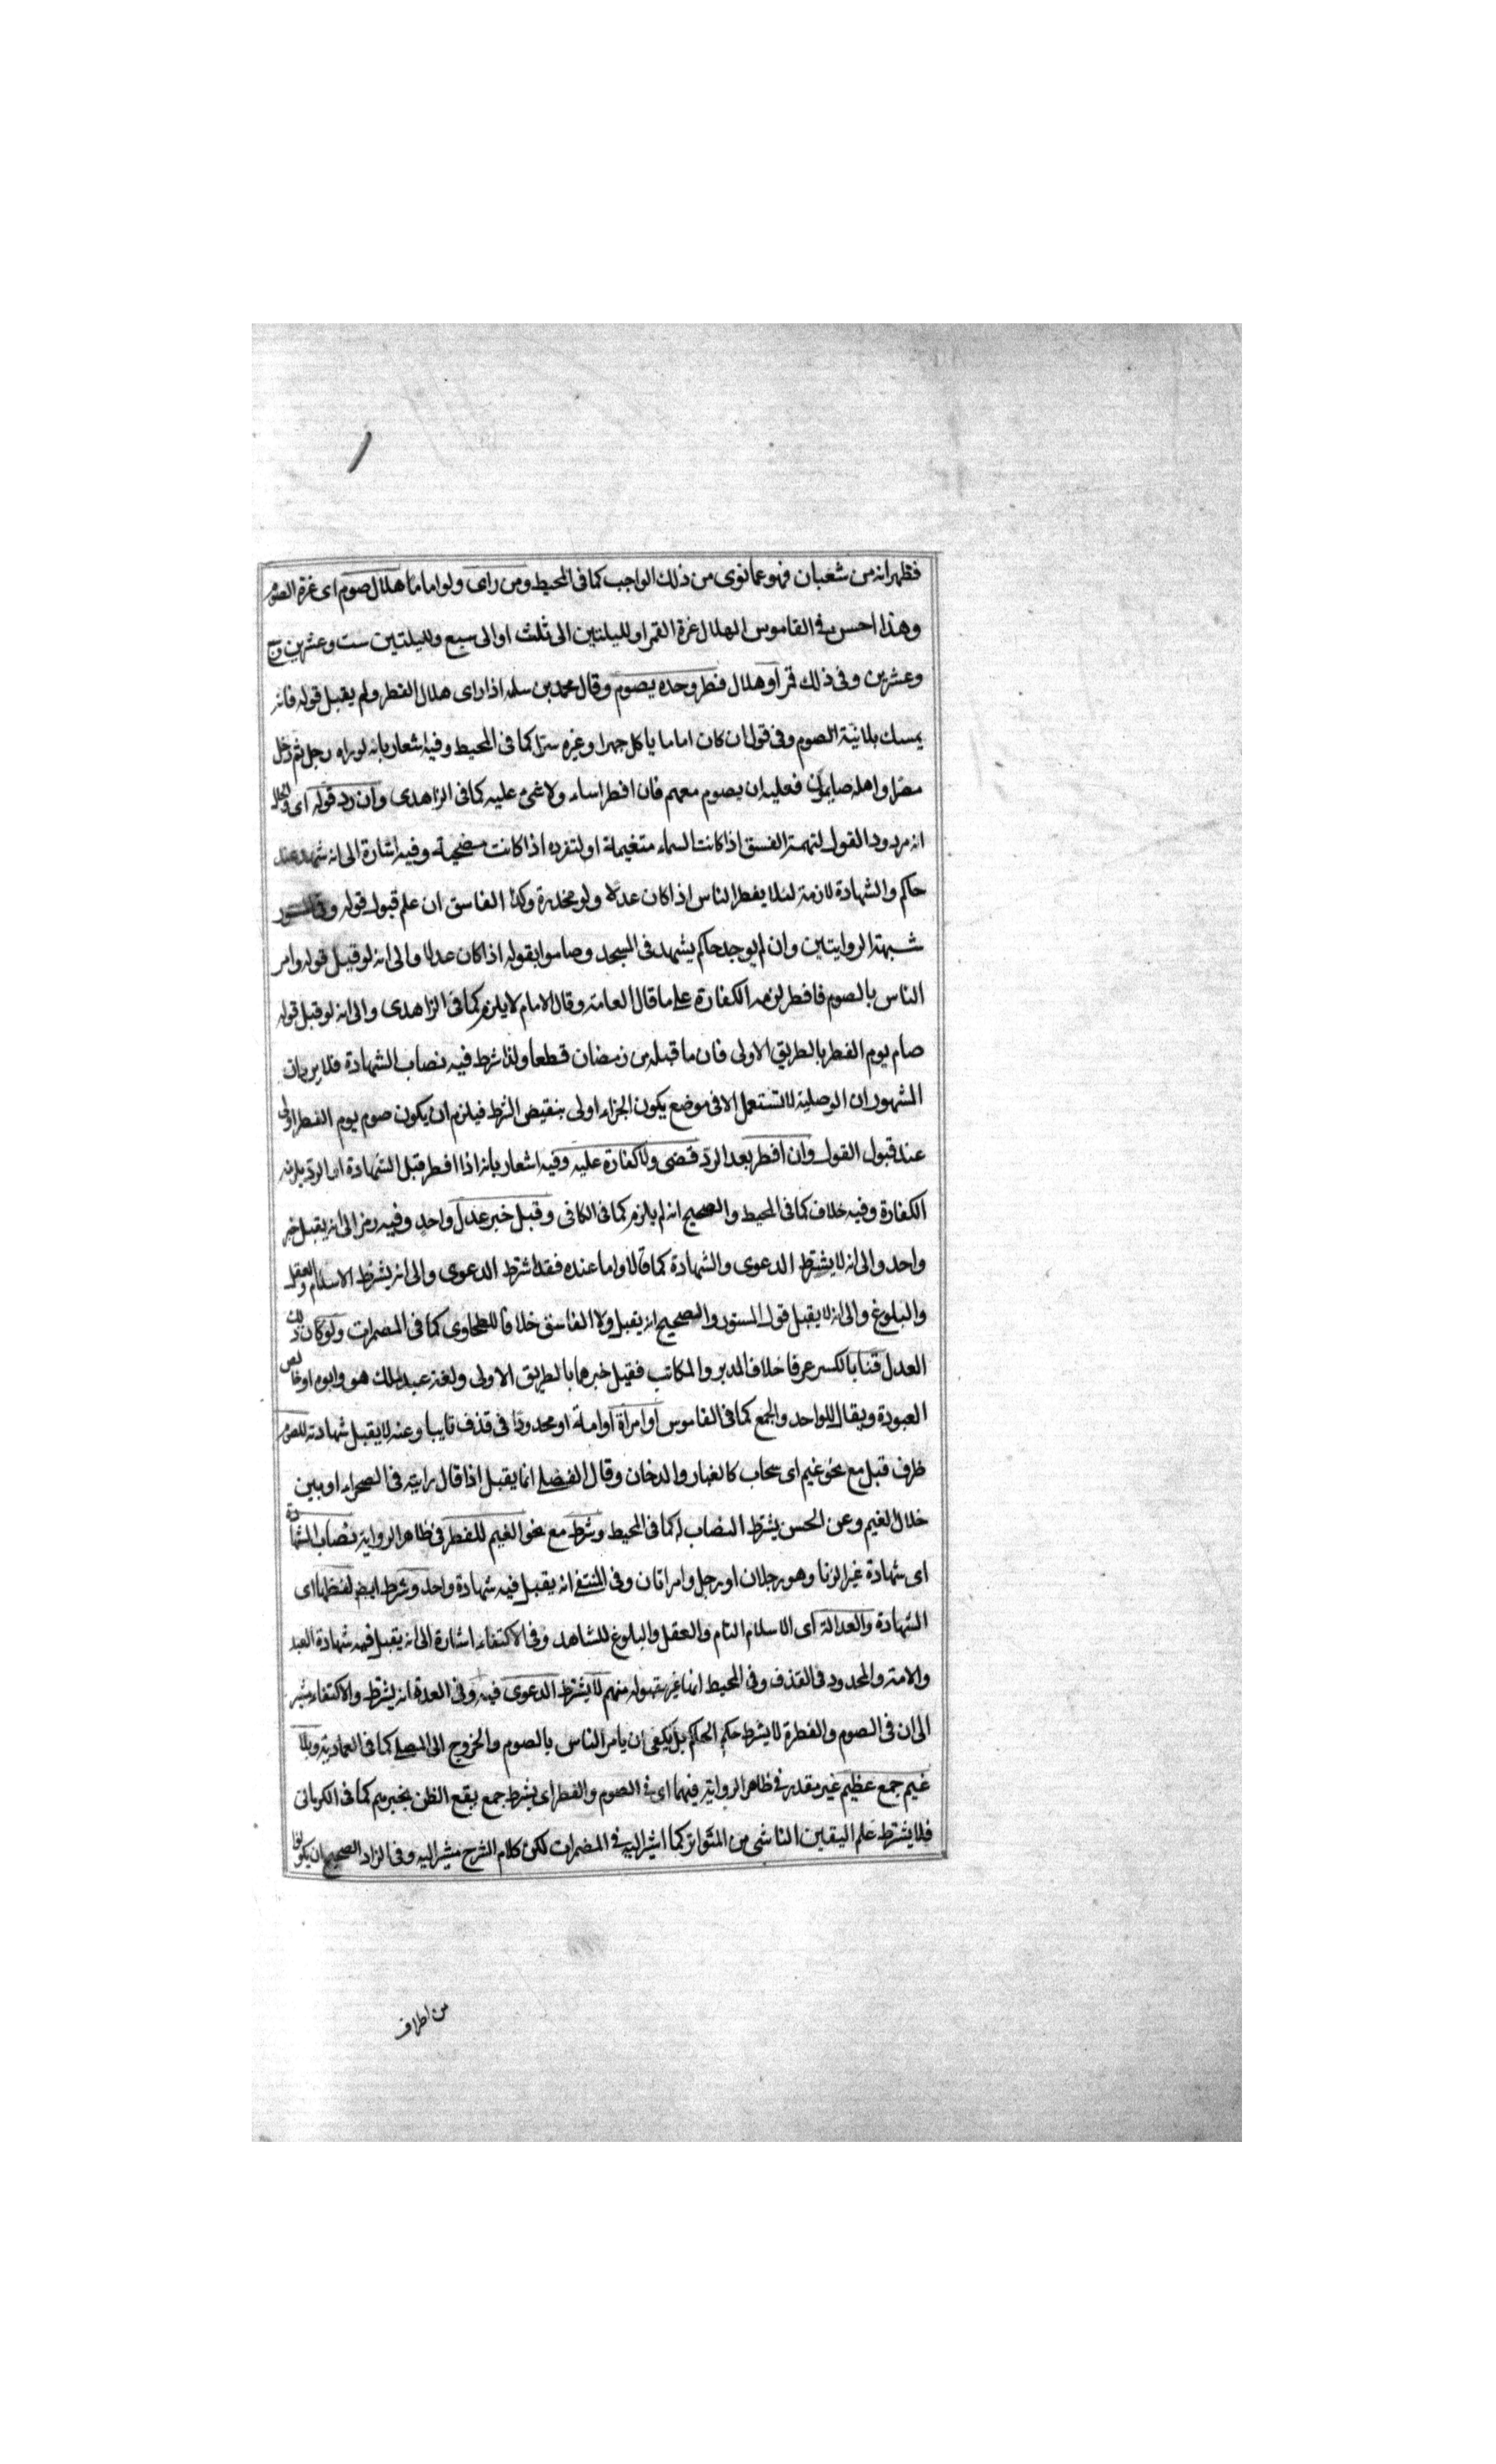 فظهر انه من شعبان فهو عما نوى من ذلك الواجب كما فى المحيط ومن راى ولو اماما هلال صوم اى غرة الصوم
وهذا احسن فى القاموس الهلال غرة القمر او لليلتين الى ثلث او الى سبع ولليلتين ست وعشرين
وعشرين وفى ذلك قمر او هلال فطر وحده يصوم وقال محمد بن سلمه اذا راى هلال الفطر ولم يقبل قوله فانه
يمسك بلا نية الصوم وفى قول ان كان اماما ياكل جهرا وغيره سرا كما فى المحيط وفيه اشعار بانه لو راه رجل ثم دخل
مصرا واهله صايمون فعليه ان يصوم معهم فان افطر اساء ولا شئ عليه كما فى الزاهدى وان رد قوله اى والحال
انه مردود القول لتهمة الفسق اذا كانت السماء متغيمة او لتفرده اذا كانت مضحية وفيه اشارة الى انه شهد عند
حاكم والشهادة لازمة لئلا يفطر الناس اذا كان عدلا ولو مخدرة وكذا الفاسق ان علم قبول قوله وفى المستور
شبهة الروايتين وان لم يوجد حاكم يشهد فى المسجد وصاموا بقوله اذا كان عدلا والى انه لو قبل قوله وامر
الناس بالصوم فافطر لزمه الكفارة على ما قال العامة وقال الامام لا يلزم كما فى الزاهدى والى انه لو قبل قوله
صام يوم الفطر بالطريق الاولى فان ما قبله من رمضان قطعا ولذا شرط فيه نصاب الشهادة فلا يرد ان
المشهور ان الوصلية لا تستعمل الا فى موضع يكون الجزاء اولى بنقيض الشرط فيلزم ان يكون صوم يوم الفطر اولى
عند قبول القول وان افطر بعد الرد قضى ولا كفارة عليه وفيه اشعار بانه اذا افطر قبل الشهادة او الرد يلزمه
الكفارة وفيه خلاف كما فى المحيط والصحيح انه لم يلزم كما فى الكافى وقبل خبر عدل واحد وفيه رمز الى انه يقبل خبر
واحد والى انه لا يشترط الدعوى والشهادة كما قالا واما عنده فقد اشترط الدعوى والى انه يشترط الاسلام والعقل
والبلوغ والى انه لا يقبل قول المستور والصحيح انه يقبل ولا الفاسق خلافا للطحاوى كما فى المضمرات ولو كان ذلك
العدل قنا بالكسر عرفا خلاف المدبر والمكاتب فقبل خبرهما بالطريق الاولى ولغة عبد ملك هو وابوه او خالص
العبودة ويقال للواحد والجمع كما فى القاموس او امراة او امة او محدودا فى قذف تايبا وعنه لا يقبل شهادته للصوم
ظرف قبل مع نحو غيم اى سحاب كالغبار والدخان وقال الفضلى انما يقبل اذا قال رايته فى الصحراء او بين
خلال الغيم وعن الحسن يشترط النصاب له كما فى المحيط وشرط مع نحو الغيم للفطر فى ظاهر الرواية نصاب الشهادة
اى شهادة غير الزنا وهو رجلان او رجل وامراتان وفى المنتقى انه يقبل فيه شهادة واحد وشرط ايض لفظها اى
الشهادة والعدالة اى الاسلام التام والعقل والبلوغ للشاهد وفى الاكتفاء اشارة الى انه يقبل فيه شهادة العبد
والامة والمحدود فى القذف وفى المحيط انها غير مقبولة منهم لا يشترط الدعوى فيه وفى العدة انه يشترط والاكتفاء مشير
الى ان فى الصوم والفطرة لا يشترط حكم الحاكم بل يكفى ان يامر الناس بالصوم والخروج الى المصلى كما فى العمادية وبلا
غيم جمع عظيم غير مقدر فى ظاهر الرواية فيهما اى فى الصوم والفطر اى يشترط جمع يقع الظن بخبرهم كما فى الكرمانى
فلا يشترط علم اليقين الناشى من المتواتر كما اشير اليه فى المضمرات لكن كلام الشرح مشير اليه وفى الزاد الصحيح ان يكونوا
من اطراف